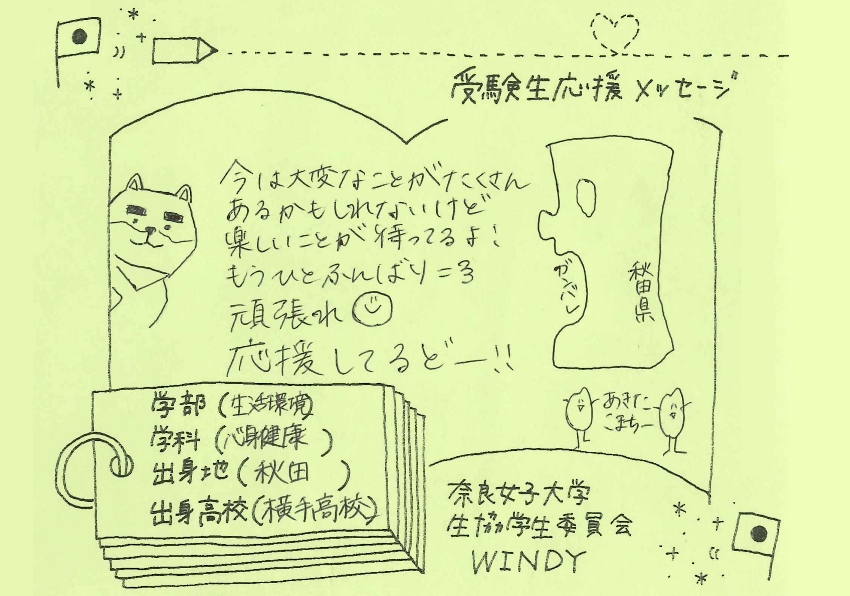 受験生応援メッセージ
今は大変なことがたくさん
あるかもしれないけど
楽しいことが待ってるよ!
もうひとふんばり=3
頑張れ
応援してるどー!!
ガンバレ
秋田県
あきた
こまちー
学部(生活環境)
学科(心身健康)
出身地(秋田)
出身高校(横手高校)
奈良女子大学
生協学生委員会
WINDY